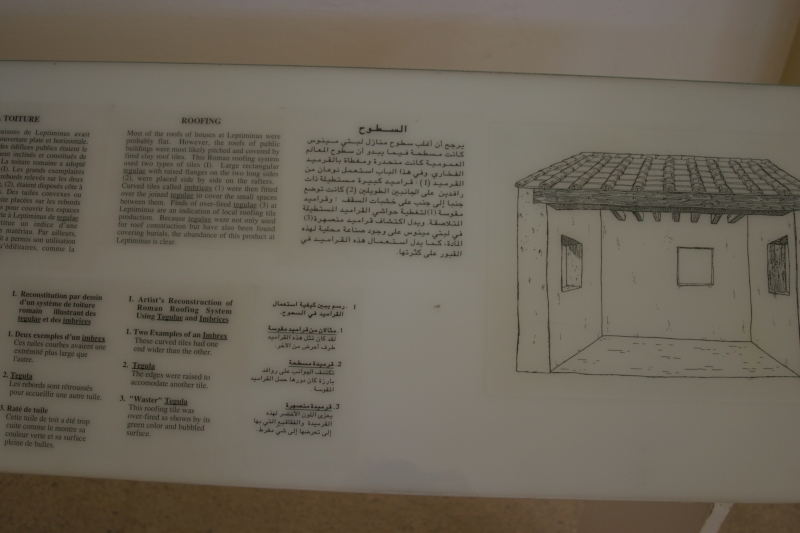 TOITURE
maisons de Leptiminus avait
ouverture plate et horizontale.
des édifices publics étaient
ment inclinés et constitués de
La texture romaine a adopté
(I). Les grands exemplaires
rebords relevés sur les deux
(2), étaient disposés côte à
Des tuiles convexes ou
placées sur les rebords
pour couvrir les espaces
à Leptiminus de tegulae
un indice d'une
matériau. Par ailleurs,
a permis son utilisation
d'édilitaires, comme la
I. Reconstitution par dessin
d'un système de toiture
romain illustrant des
tegulae et des imbrices
1. Deux exemples d'un imbrex
Ces tuiles courbes avaient une
extrémité plus large que
l'autre.
2. Tegula
Les rebords sont rétroussés
pour accueillir une autre tuile.
3. Raté de tuile
Cette tuile de toit a été trop
cuite comme le montre sa
couleur verte et sa surface
pleine de bulles.
ROOFING
Most of the roofs of houses at Leptiminus were
probably flat. However, the roofs of public
buildings were most likely pitched and covered by
fired clay roof tiles. This Roman roofing system
used two types of tiles (I). Large rectangular
tegulae with raised flanges on the two long sides
(2), were placed side by side on the rafters.
Curved tiles called imbrices (1) were then fitted
over the joined tegulae to cover the small spaces
between them. Finds of over-fired tegulae (3) at
Leptiminus are an indication of local roofing tile
production. Because tegulae were not only used
for roof construction but have also been found
covering burials, the abundance of this product at
Leptiminus is clear.
I. Artist's Reconstruction of
Roman Roofing System
Using Tegulae and Imbrices
1. Two Examples of an Imbrex
These curved tiles had one
end wider than the other.
2. Tegula
The edges were raised to
accomodate another tile.
3. "Waster" Tegula
This roofing tile was
over-fired as shown by its
green color and bubbled
surface.
السطوح
يرجح أن أغلب سطوح منازل لبتي مينوس
كانت مسطحة فيما يبدو أن سطوح المعالم
العمومية كانت منحدرة ومغطاة بالقرميد
الفخاري. وفي هذا الباب استعمل نوعان من
القرميد (I) : قراميد كبيرة مستطيلة ذات
رافدين على الجانبين الطويلين (2) كانت توضع
جنبا إلى جنب على خشبات السقف ؛ وقراميد
مقوسة (1) لتغطية حواشي القراميد المستطيلة
المتلاصقة. ويدل اكتشاف قراميد منصهرة (3)
في لبتي مينوس على وجود صناعة محلية لهذه
المادة، كما يدل استعمال هذه القراميد في
القبور على كثرتها.
I . رسم يبين كيفية استعمال
القراميد في السطوح.
1. مثالان من قراميد مقوسة
لقد كان لمثل هذه القراميد
طرف أعرض من الآخر.
2. قرميدة مسطحة
تكتنف الجوانب على روافد
بارزة كان دورها حمل القراميد
المقوسة
3. قرميدة منصهرة
يعزى اللون الأخضر لهذه
القرميدة والفقاقيع التي بها
إلى تعرضها إلى شي مفرط.